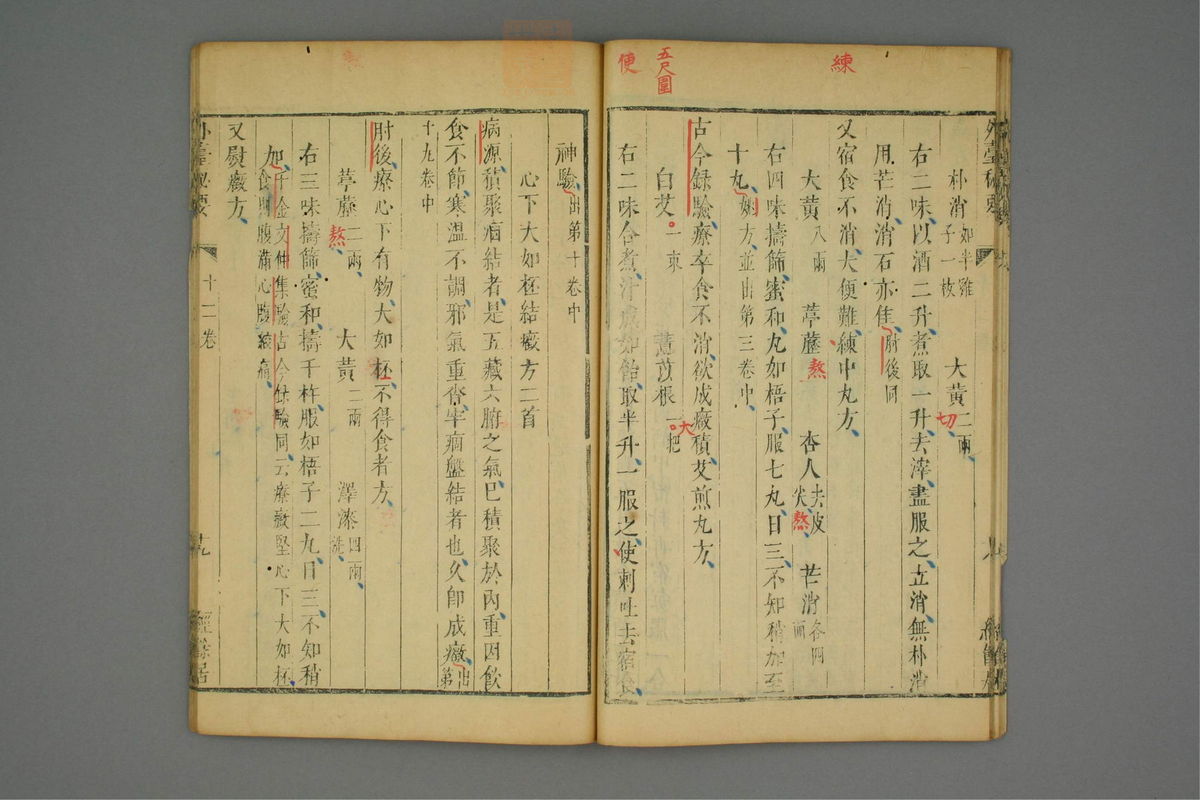 練
五尺圍
使
朴消如半雞子一枚 大黄二兩切
右二味以酒二升煮取一升去滓盡服之立消無朴消
用芒消消石亦佳肘後同
又宿食不消大便難練中丸方
大黄八兩 葶藶熬 杏人去皮尖熬 芒消各四兩
右四味擣篩蜜和丸如梧子服七丸日三不知稍加至
十丸姚方並出第三卷中
古今録驗療卒食不消欲成癥積艾煎丸方
白艾一束 薏苡根一大把
右二味合煮汁成如飴取半升一服之使刺吐去宿食
神驗出第十卷中
心下大如杯結癥方二首
病源積聚痼結者是五藏六腑之氣已積聚於内重因飲
食不節寒温不調邪氣重沓牢痼盤結者也久即成癥出第
十九卷中
肘後療心下有物大如杯不得食者方
葶藶二兩熬 大黄二兩 澤漆四兩洗
右三味擣篩蜜和擣千杵服如梧子二丸日三不知稍
加千金文仲集驗古今録驗同云療癥堅心下大如杯食則腹滿心腹絞痛
又熨癥方
外臺秘要
十二卷
九
經餘居